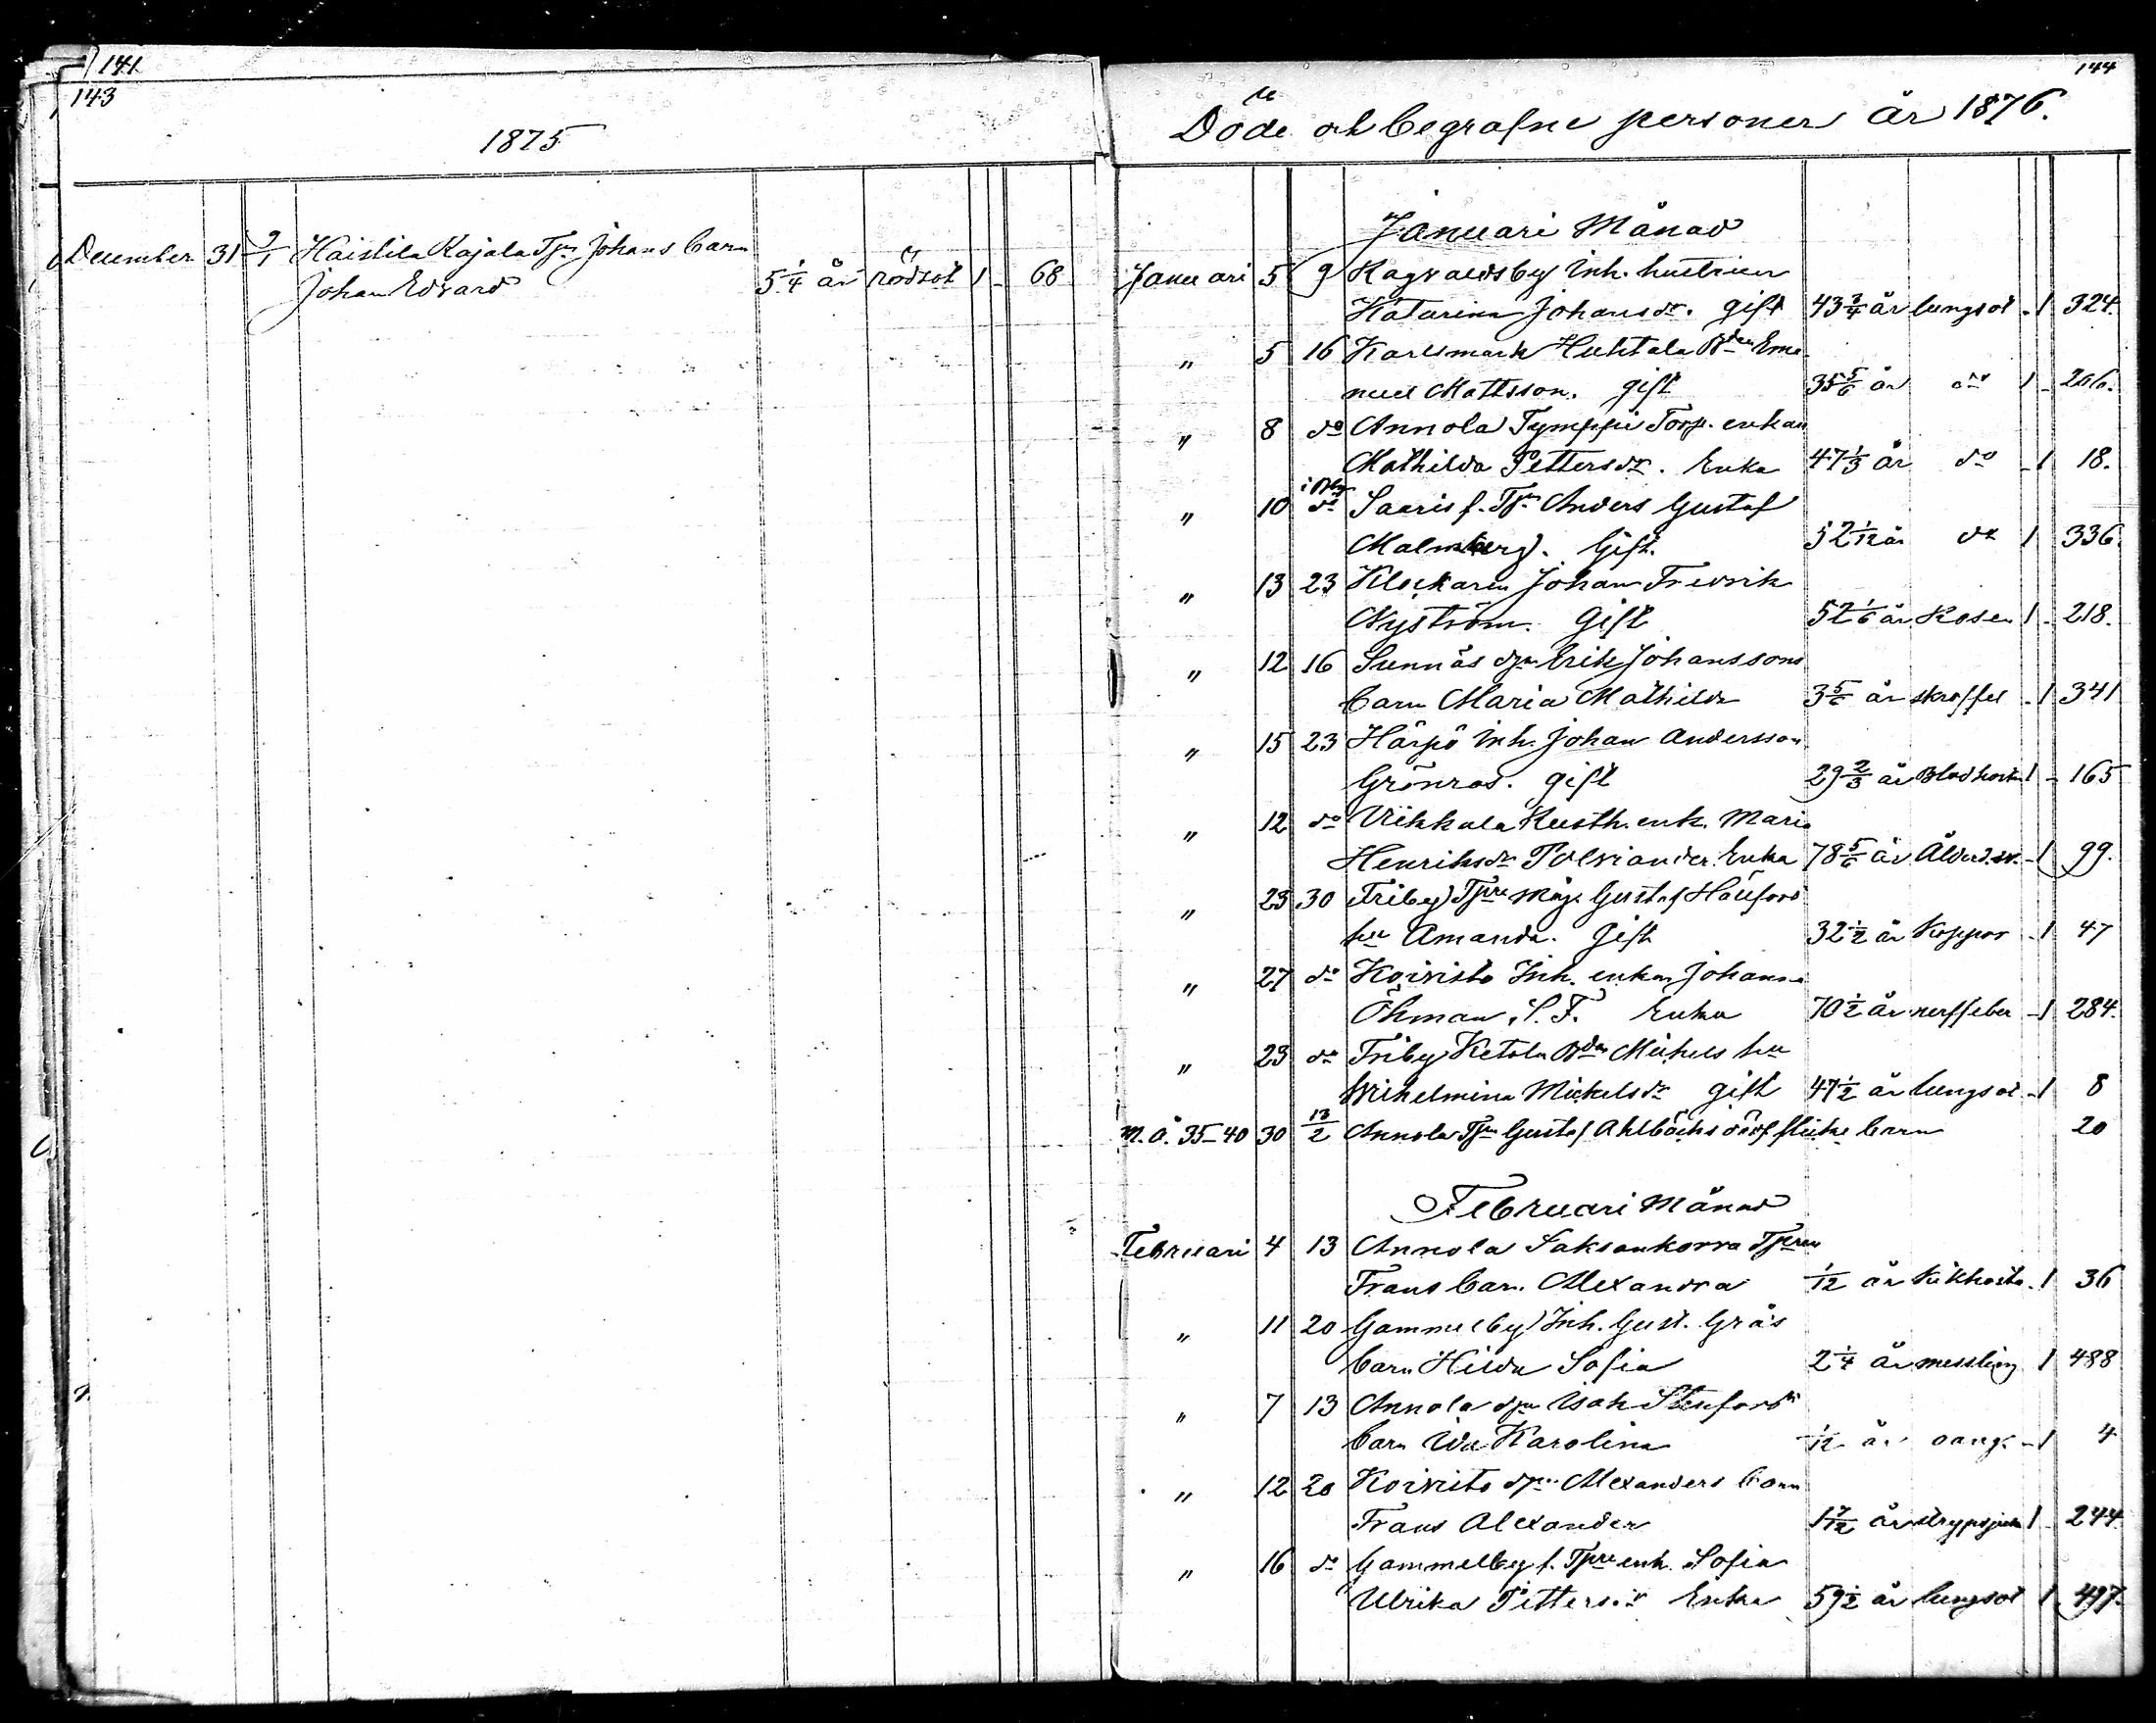 141
143
1875
December 31 9/1 Haistila Kajala Tjn Johans barn
Johan Edvard 5 1/4 år rödsot 1 - 68
144
Döde och begrafne personer år 1876.
Januari Månad
Januari 5 9 Ragvaldsby Inh. hustrun
Katarina Johansdr. gift 43 3/4 år lungsot - 1 324.
" 5 16 Karlsmark Huhtala Bden Ema-
nuel Mattsson. gift 35 5/6 år do 1 - 206.
" 8 do Annola Tymppi Torp. enkan
Mathilda Pettersdr. Enka 47 1/3 år do - 1 18.
" 10 do Saaris f. Tpn Anders Gustaf
Malmberg. Gift. 52 1/12 år do 1 336.
" 13 23 Klockaren Johan Fredrik
Nyström. Gift 52 1/6 år Rosen 1 - 218.
" 12 16 Sunnäs djn Erik Johanssons
barn Maria Mathilda 3 5/6 år skroffel - 1 341
" 15 23 Härpö Inh. Johan Andersson
Grönroos. gift 29 2/3 år Blodhosta 1 - 165
" 12 do Viikkala Rusth. enk. Maria
Henriksdr Polviander. Enka 78 5/6 år Ålderd.sv. - 1 99.
" 23 30 Friby Tjre Gustaf
hu Amanda. Gift 32 1/2 år Koppor - 1 47
" 27 do Koivisto Inh. enkan Johanna
Öhman, S.F. Enka 70 1/2 år nerffeber - 1 284.
" 23 do Friby Ketola Bden Mickels hu
Wilhelmina Mickelsdr gift 47 1/2 år lungsot - 1 8
m. å. 35-40 30 13/2 Annola Tjn Gustaf Ahlbäcks dödf flicke barn 20
Februari Månad
Februari 4 13 Annola Saksankorva Tjren
Frans barn. Alexandra 1/12 år kikhosta - 1 36
" 11 20 Gammelby Inh. Gust. Gräs
barn Hilda Sofia 2 1/4 år messling 1 488
" 7 13 Annola djn Isak Stenfors
barn Ida Karolina 1/12 år oang. - 1 4
" 12 20 Koivisto djn Alexanders barn
Frans Alexander 1 7/12 år strypsjuka 1 - 244.
" 16 do Gammelby f. Tjre enk. Sofia
Ulrika Pettersdr Enka 59 1/2 år lungsot 1 497.